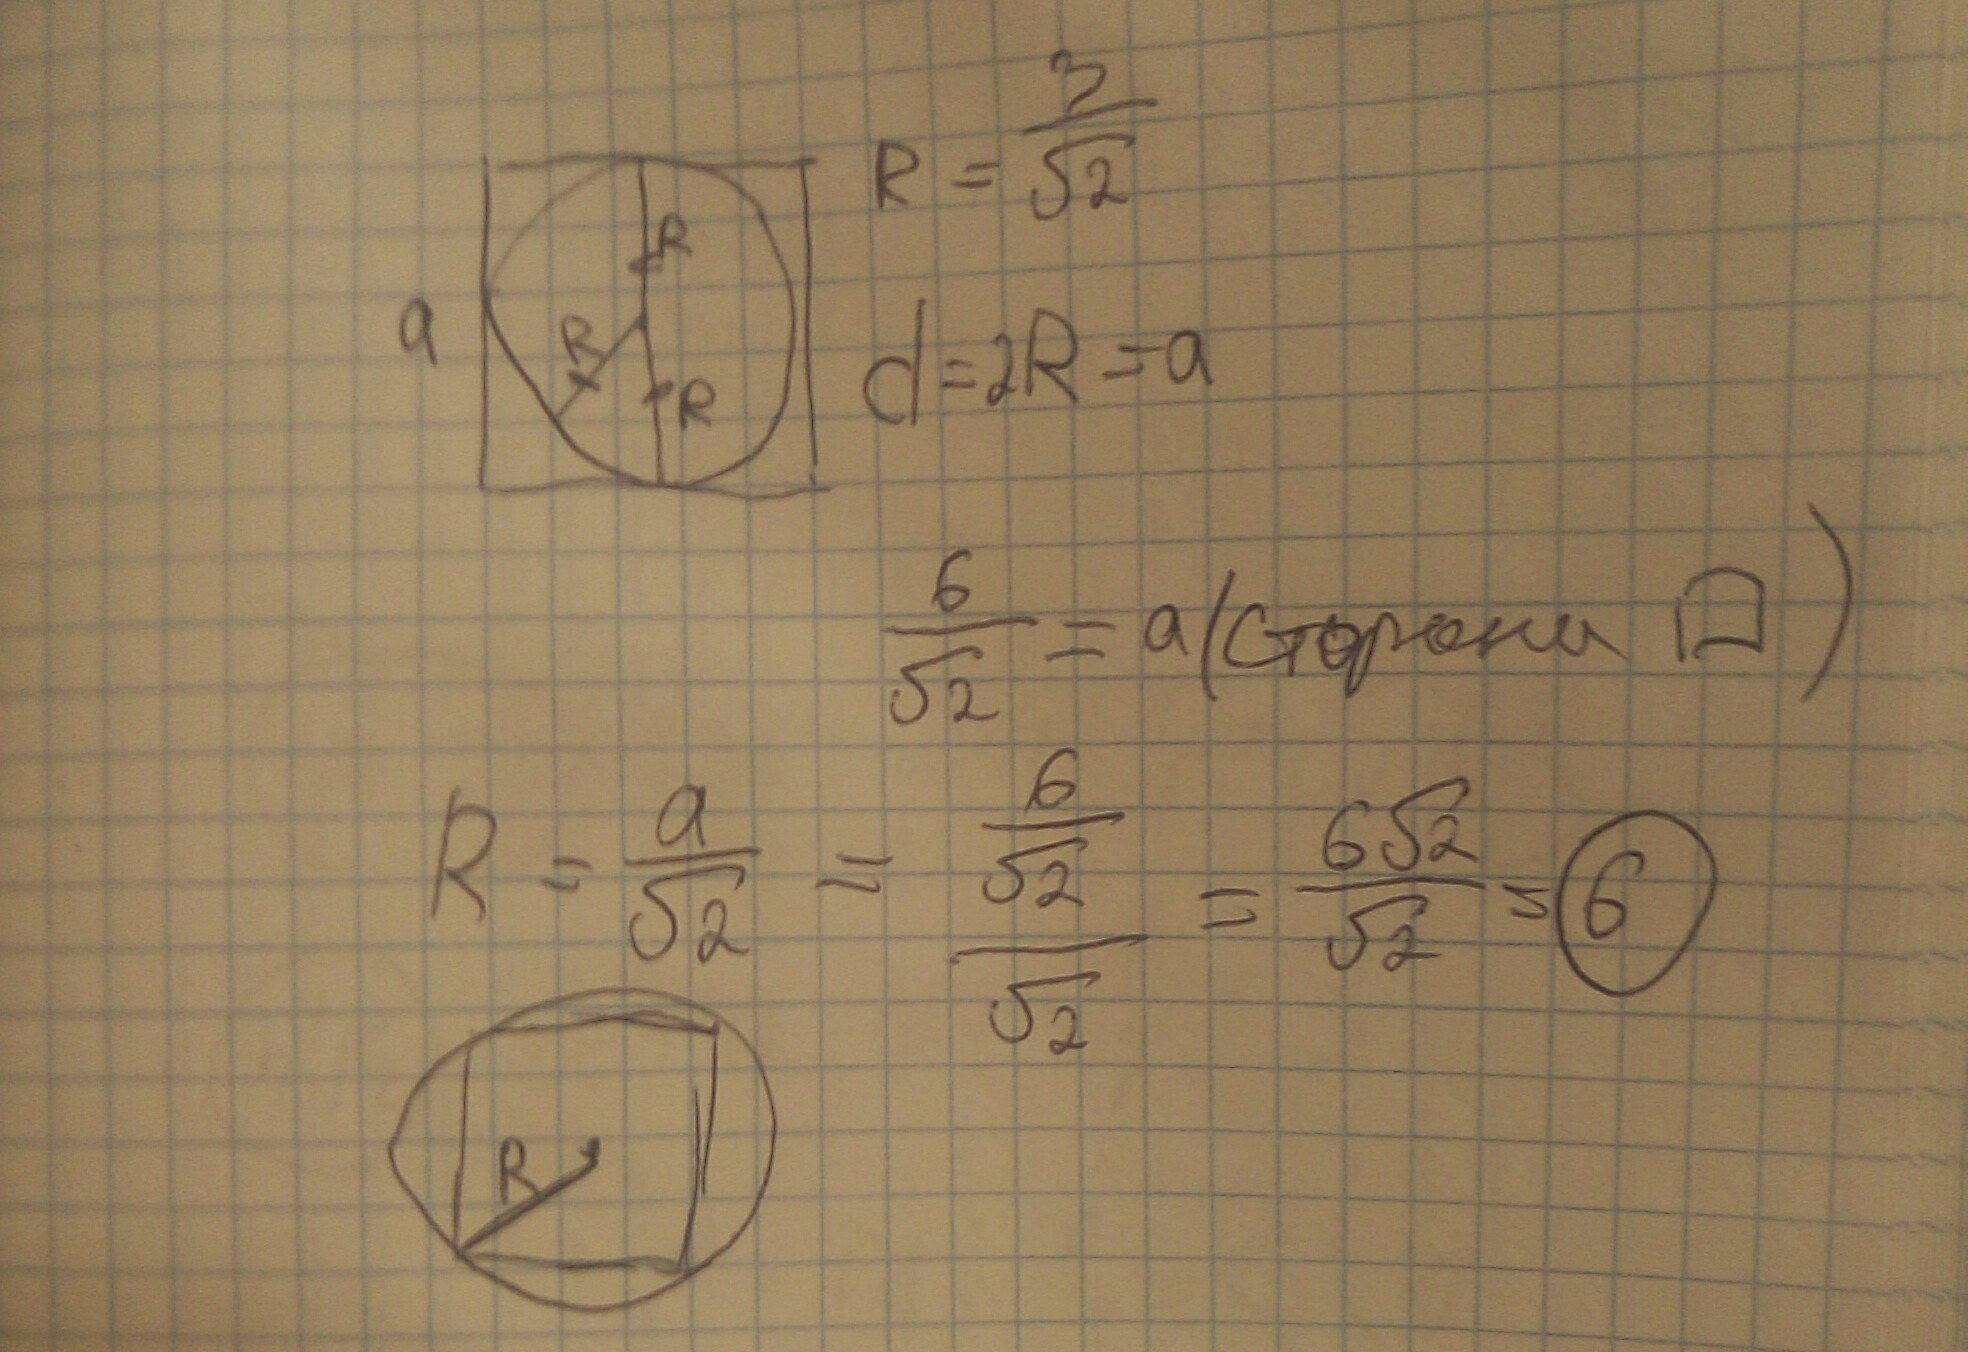 R = 3/√2
R
a
R
R
d=2R=a
6/√2 = a (сторона □)
R = a/√2 = (6/√2)/√2 = 6√2/√2 = 6
R